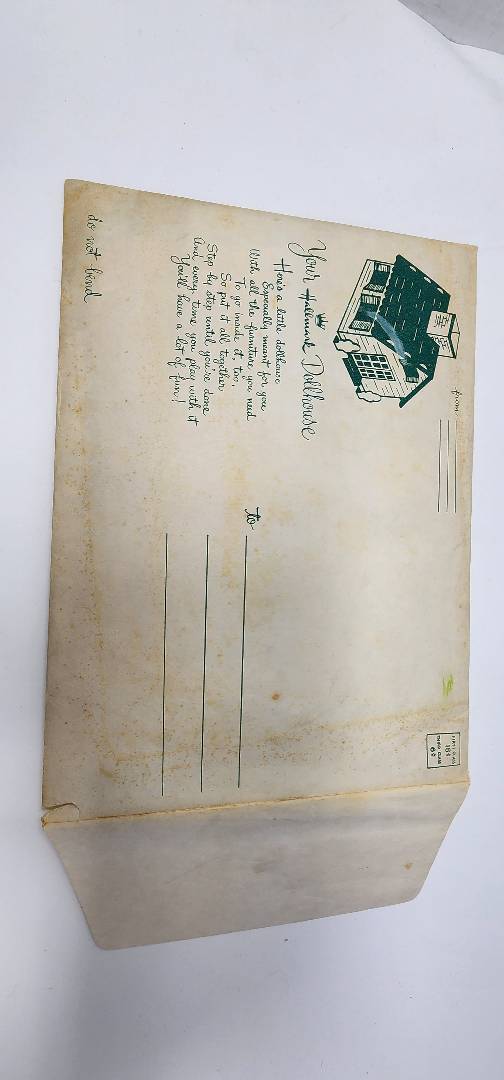 from
Your Hallmark Dollhouse
Here's a little dollhouse
Especially meant for you
With all the furniture you need
To go inside it, too,
So put it all together
Step by step until you're done
And every time you play with it
You'll have a lot of fun!
to
do not bend
FIRST CLASS
18¢
THIRD CLASS
6¢